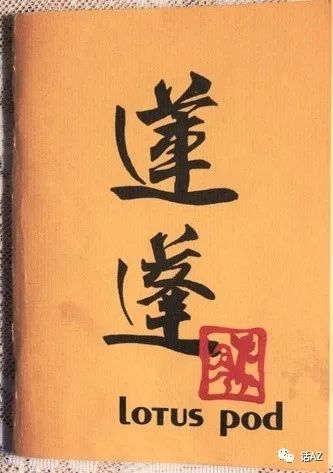 蓮
蓬
LOTUS pod
话AZ